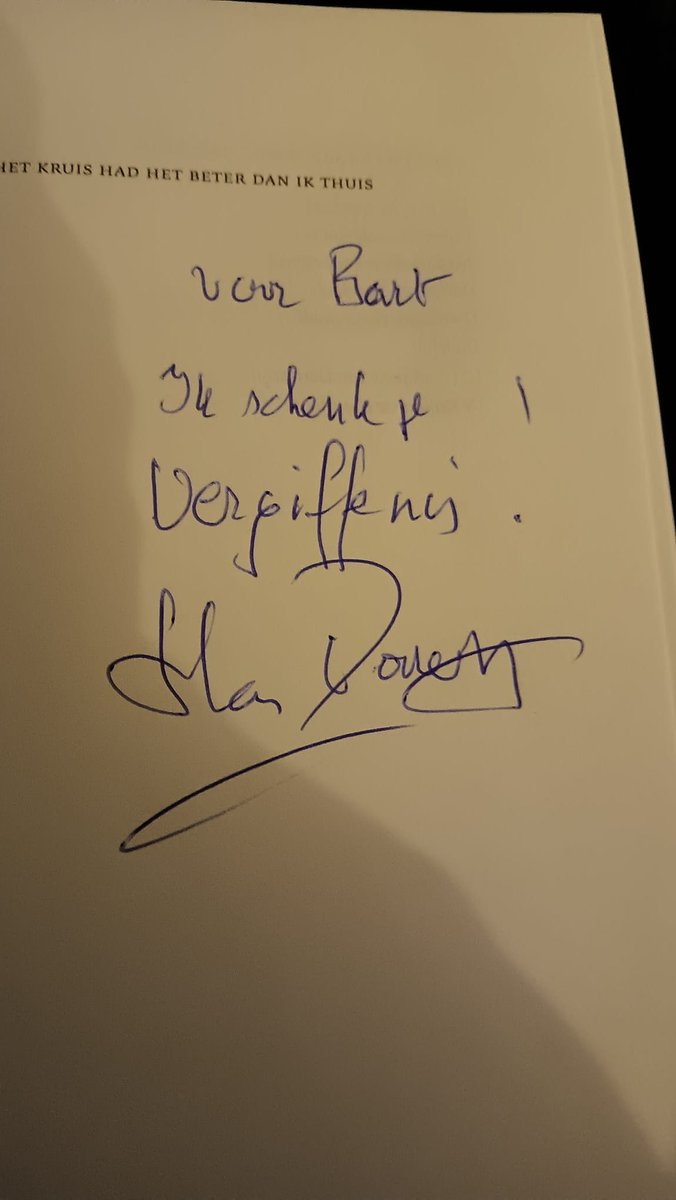 HET KRUIS HAD HET BETER DAN IK THUIS
voor Bart
Ik schenk je !
Vergiffenis